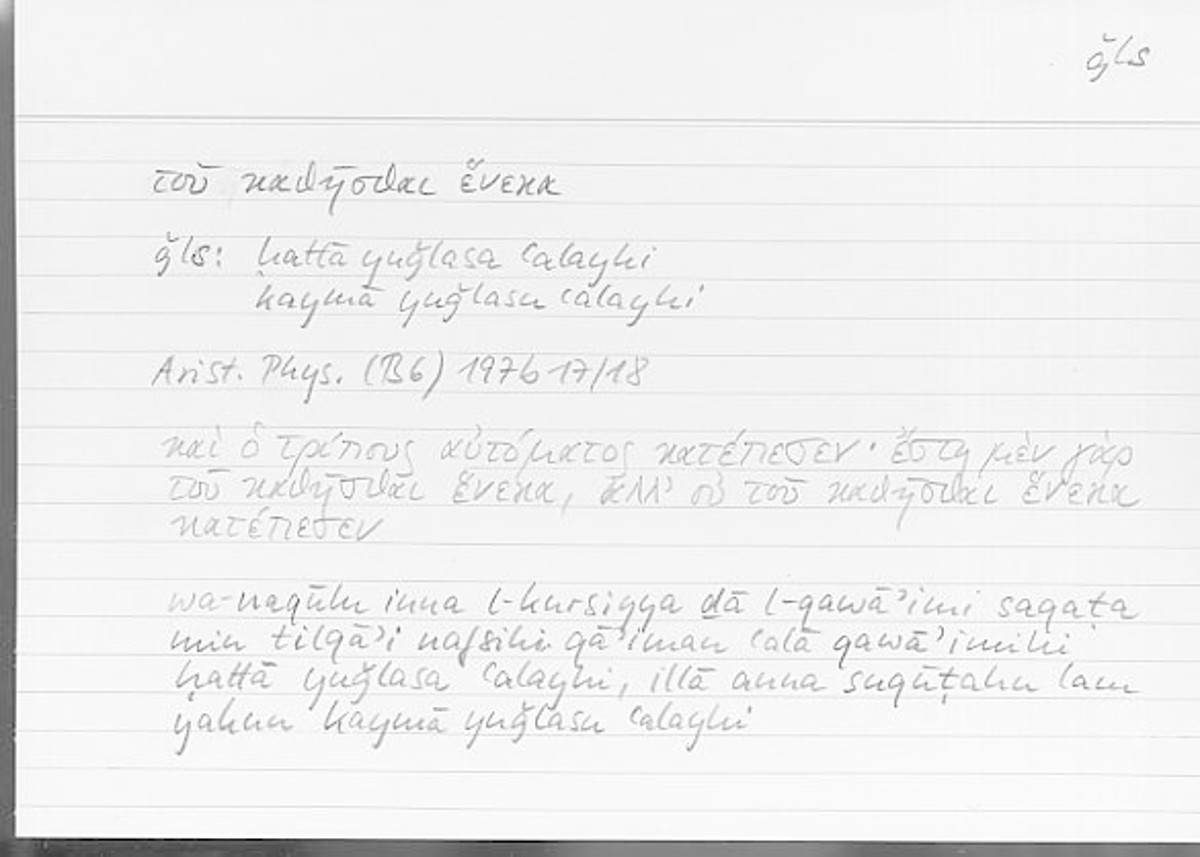 ǧls
τοῦ καθῆσθαι ἕνεκα
ǧls: ḥattā yuǧlasa ʿalayhi
kaymā yuǧlasu ʿalayhi
Arist. Phys. (B6) 197b 17/18
καὶ ὁ τρίπους αὐτόματος κατέπεσεν· ἔστη μὲν γὰρ
τοῦ καθῆσθαι ἕνεκα, ἀλλ' οὐ τοῦ καθῆσθαι ἕνεκα
κατέπεσεν
wa-naqūlu inna l-kursiyya ḏā l-qawāʾimi saqaṭa
min tilqāʾi nafsihi qāʾiman ʿalā qawāʾimihi
ḥattā yuǧlasa ʿalayhi, illā anna suqūṭahu lam
yakun kaymā yuǧlasu ʿalayhi